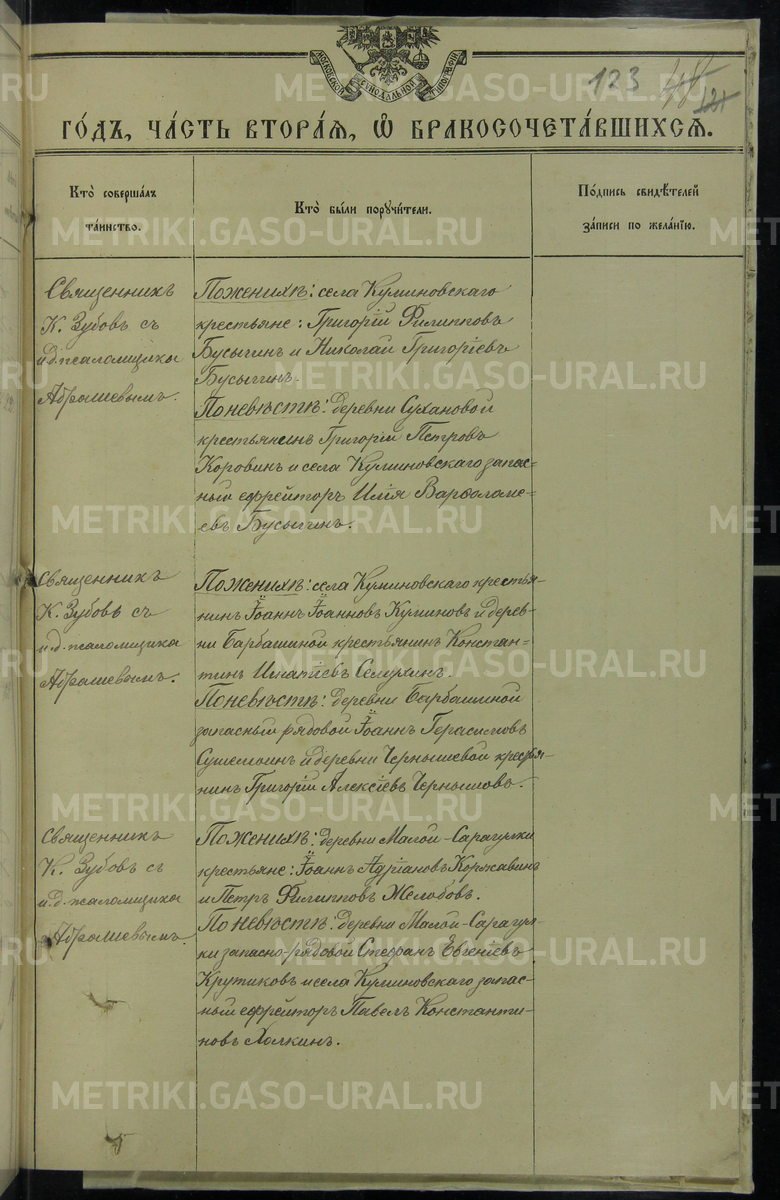 МОСКОВСКОЙ СѴНОДАЛЬНОЙ ТИПОГРАФІИ
123
121
ГО́ДЪ, ЧА́СТЬ ВТОРА́Я, Ѽ БРАКОСОЧЕТА́ВШИХСѦ.
Кто̀ соверша́лъ
та́инство.
Кто̀ бы́ли порꙋчи́тели.
По́дпись свидѣ́телей
за́писи по жела́нїю.
Священникъ
К. Зубовъ съ
и.д. псаломщика
Абрашевымъ.
По женихѣ: села Куминовскаго
крестьяне: Григорій Филипповъ
Бусыгинъ и Николай Григоріевъ
Бусыгинъ.
По невѣстѣ: деревни Сухановой
крестьянинъ Григорій Петровъ
Коровинъ и села Куминовскаго запас-
ный ефрейторъ Илія Варѳоломе-
евъ Бусыгинъ.
Священникъ
К. Зубовъ съ
и.д. псаломщика
Абрашевымъ.
По женихѣ: села Куминовскаго крестья-
нинъ Іоаннъ Іоанновъ Куминовъ и дерев-
ни Барбашиной крестьянинъ Констан-
тинъ Игнатіевъ Семухинъ.
По невѣстѣ: деревни Барбашиной
запасный рядовой Іоаннъ Герасимовъ
и деревни Чернышевой крестья-
нинъ Григорій Алексіевъ Чернышовъ.
Священникъ
К. Зубовъ съ
и.д. псаломщика
Абрашевымъ.
По женихѣ: деревни Малой-Сарагулки
крестьяне: Іоаннъ Адріановъ Коржавинъ
и Петръ Филипповъ Желобовъ.
По невѣстѣ: деревни Малой-Сарагул-
ки запасно-рядовой Стефанъ Евгеніевъ
Крутиковъ и села Куминовскаго запас-
ный ефрейторъ Павелъ Константи-
новъ Холкинъ.
METRIKI.GASO-URAL.RU